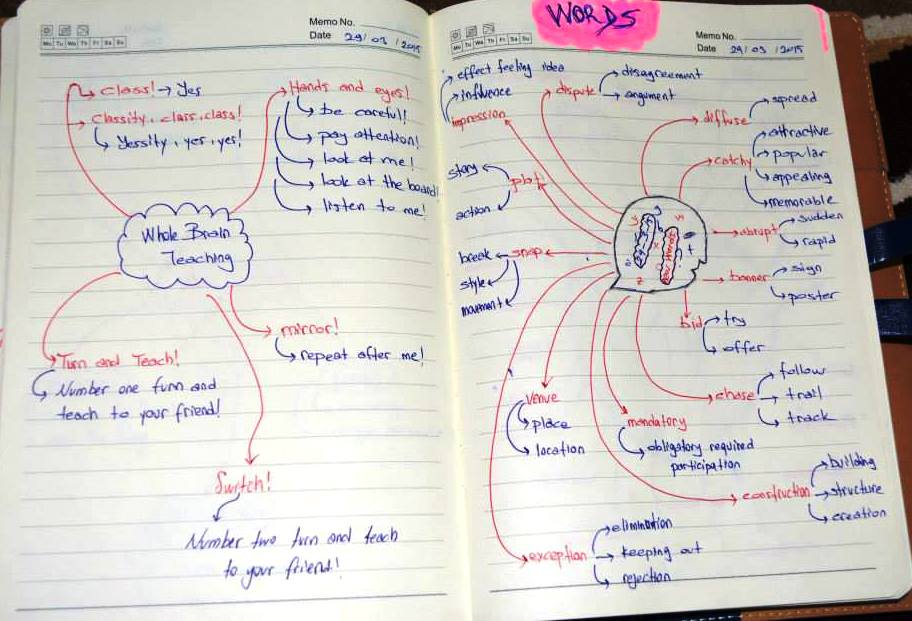 Memo No.
Mo Tu We Th Fr Sa Su
Date 29/03/2015
Class! → Yes
Classity, class, class!
Yessity, yes, yes!
Hands and eyes!
be careful!
pay attention!
look at me!
look at the board!
listen to me!
Whole Brain
Teaching
mirror!
repeat after me!
Turn and Teach!
Number one turn and
teach to your friend!
Switch!
Number two turn and teach
to your friend!
WORDS
Mo Tu We Th Fr Sa Su
Memo No.
Date 29/03/2015
effect feeling idea
influence
impression
dispute
disagreement
argument
diffuse
spread
catchy
attractive
popular
appealing
memorable
plot
story
action
abrupt
sudden
rapid
snap
break
style
movement
banner
sign
poster
bid
try
offer
venue
place
location
mandatory
obligatory required
participation
chase
follow
trail
track
construction
building
structure
creation
exception
elimination
keeping out
rejection